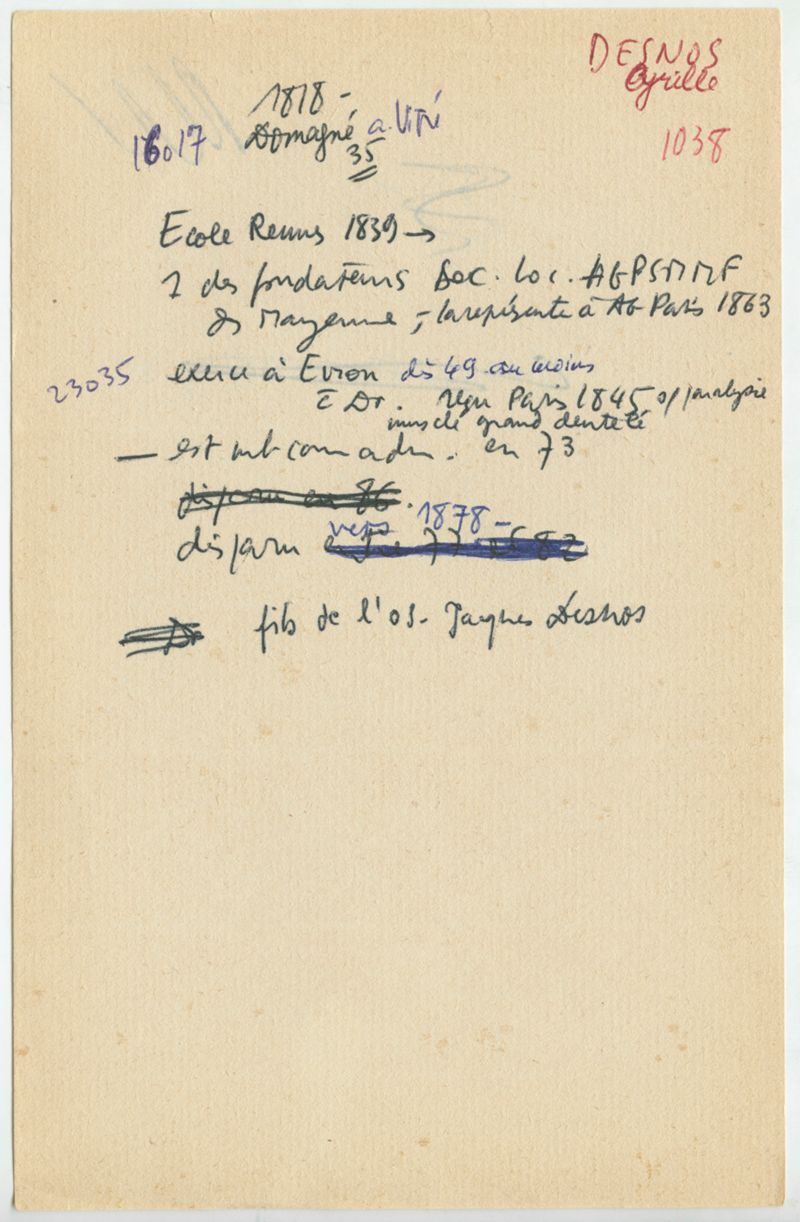 DESNOS
Cyrille
1038
1818 -
Domagné a. Vitré
35
16017
Ecole Rennes 1839 →
1 des fondateurs Soc. loc. AGPSMMF
de Mayenne, - la représente à AG Paris 1863
23035 exerce à Evron dès 49 au moins
c̄ Dr. reçu Paris 1845 s/ paralysie
muscle grand dentelé
— est sub com adm. en 73
disparu en 86.
disparu entre 77 et 82
vers 1878 -
Dr fils de l'os. Jacques Desnos